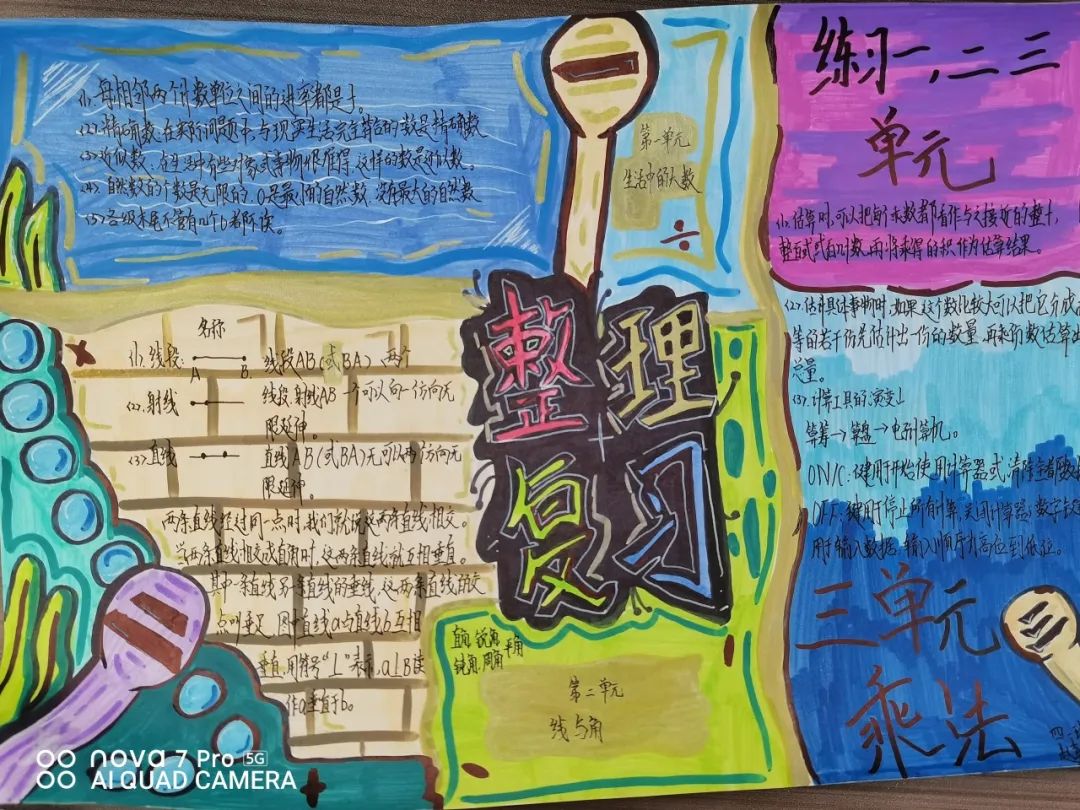 (1). 每相邻两个计数单位之间的进率都是十。
(2). 精确数,在实际问题中,与现实生活完全符合的数是精确数
(3) 近似数,在生活中有些对象或事物很难得,这样的数是近似数。
(4). 自然数的个数是无限的,0是最小的自然数,没有最大的自然数
(5) 各级末尾不管有几个0都不读。
第一单元
生活中的大数
÷
练习一,二 三
单元
(1). 估算时,可以把每个乘数都看作与之接近的整十,
整百或
再将乘得的积作为估算结果。
整理
复习
名称
(1). 线段:
A B.
线段AB(或BA) 两个
(2). 射线
线段,射线AB 一个可以向一个方向无
限延伸。
(3) 直线
直线AB(或BA)无可以两个方向无
限延伸。
两条直线经过同一点时,我们就说这两条直线相交。
当两条直线相交成直角时,这两条直线就互相垂直。
其中一条直线另一条直线的垂线,这两条直线的交
点叫垂足,图中直线a与直线b互相
垂直,用符号“⊥”表示,a⊥B读
作a垂直于b。
直角,锐角,平角
钝角,周角
第二单元
线与角
(2). 估计具体事物时,如果这个数比较大可以把它分成
等的若干份先估计出一份的数量,再乘份数估算出
总量。
(3). 计算工具的演变
算筹→算盘→电子计算机。
ON/C:键用于开始使用计算器或清除
OFF:键用于停止所有计算,关闭计算器;数字
用于输入数据,输入顺序为高位到低位。
三单元
乘法
nova 7 Pro 5G
AI QUAD CAMERA